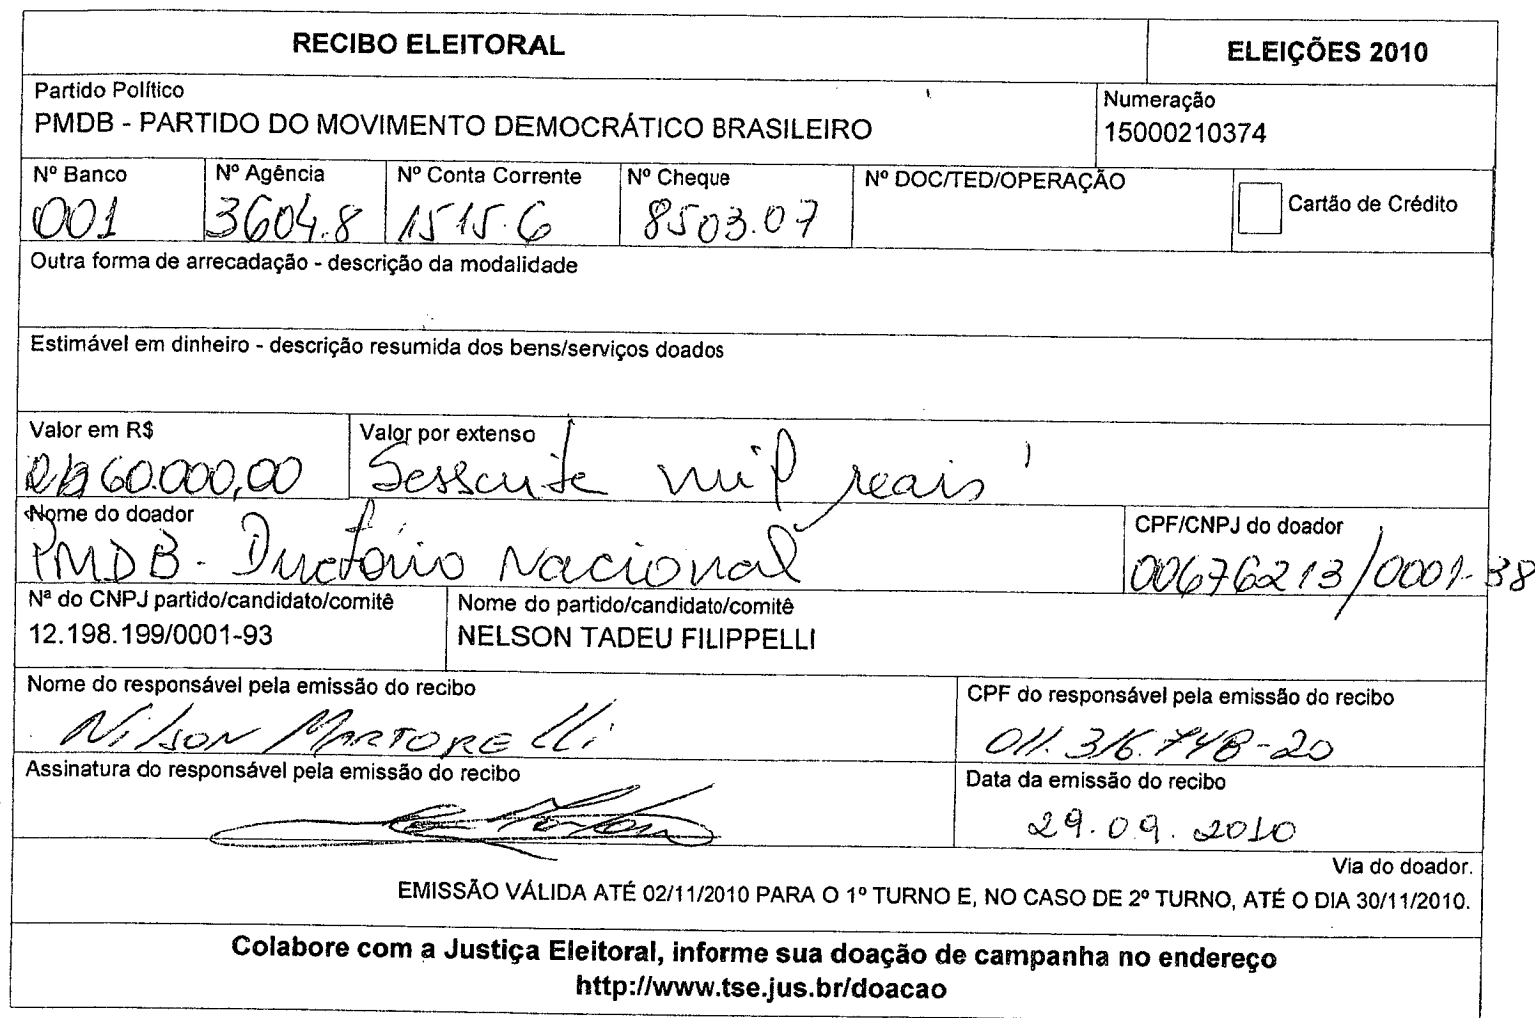 RECIBO ELEITORAL
ELEIÇÕES 2010
Partido Político
PMDB - PARTIDO DO MOVIMENTO DEMOCRÁTICO BRASILEIRO
Numeração
15000210374
Nº Banco
001
Nº Agência
3604.8
Nº Conta Corrente
1515.6
Nº Cheque
8503.07
Nº DOC/TED/OPERAÇÃO
Cartão de Crédito
Outra forma de arrecadação - descrição da modalidade
Estimável em dinheiro - descrição resumida dos bens/serviços doados
Valor em R$
R$ 60.000,00
Valor por extenso
Sessenta mil reais
Nome do doador
PMDB - Diretório Nacional
CPF/CNPJ do doador
00676213/0001-38
Nª do CNPJ partido/candidato/comitê
12.198.199/0001-93
Nome do partido/candidato/comitê
NELSON TADEU FILIPPELLI
Nome do responsável pela emissão do recibo
Nilson Martorelli
CPF do responsável pela emissão do recibo
011.316.748-20
Assinatura do responsável pela emissão do recibo
Data da emissão do recibo
29.09.2010
Via do doador.
EMISSÃO VÁLIDA ATÉ 02/11/2010 PARA O 1º TURNO E, NO CASO DE 2º TURNO, ATÉ O DIA 30/11/2010.
Colabore com a Justiça Eleitoral, informe sua doação de campanha no endereço
http://www.tse.jus.br/doacao